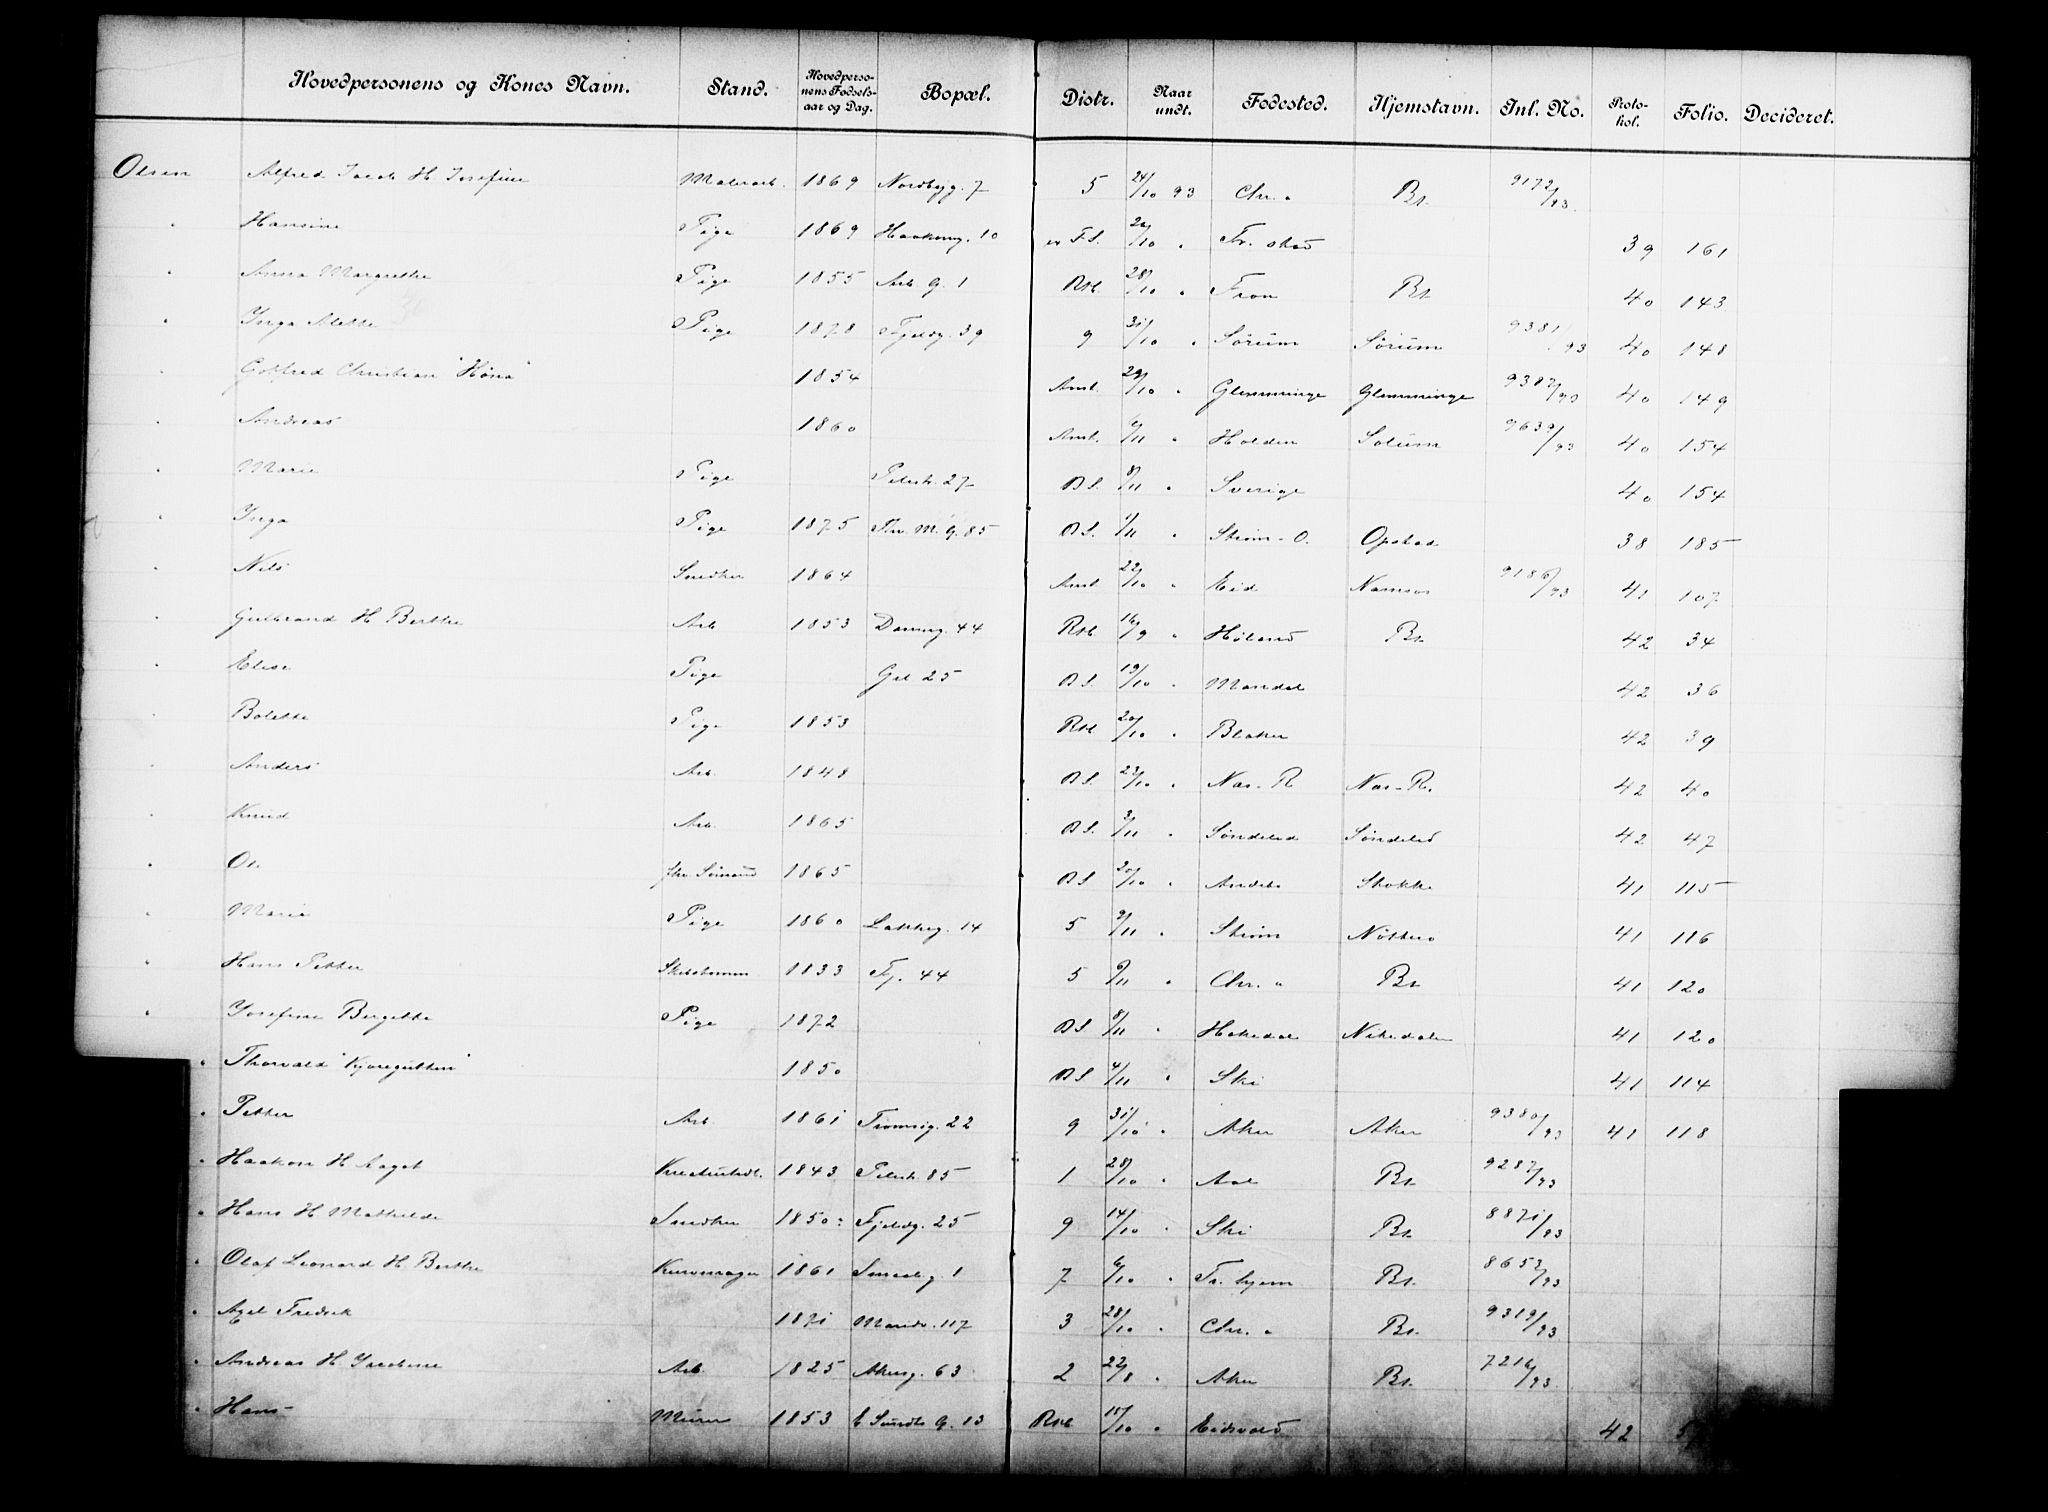 Hovedpersonens og Kones Navn. Stand. Hovedperso-nens Fødsels-aar og Dag. Bopæl. Distr. Naar undt. Fødested. Hjemstavn. Inl. No. Proto-kol. Folio. Decideret.
Olsen Alfred Jacob H. Josefine Malerarb. 1869 Nordbyg. 7 5 24/10 93 Chr. a Bt. 9172/93
" Hansine Pige 1869 Haakong. 10 FS. /10 " Fr. stad 39 161
" Anna Margrethe Pige 1855 Arb. G. 1 Rst. 28/10 " Fron Bt. 40 143
" Inga Alette Pige 1878 Fjeldg. 39 9 31/10 " Sørum Sørum 9381/93 40 148
" Gotfred Christian "Høna" 1854 Amt. 29/10 " Glemminge Glemminge 9387/93 40 149
" Andreas 1860 Amt. 6/11 " Holden Solum 9639/93 40 154
" Marie Pige Pilestr. 27 BS. 8/11 " Sverige 40 154
" Inga Pige 1875 Thv. M. G. 85 BS. 1/11 " Strøm-O. Opstad 38 185
" Nils Snedker 1864 Amt 22/10 " Eid Namsos 9186/93 41 107
" Gulbrand H. Berthe Arb. 1853 Damsg. 44 Rst. 16/9 " Høland Bt. 42 34
" Elise Pige Gd. 25 BS. 19/10 " Mandal 42 36
" Bolette Pige 1853 Rst. 20/10 " Blaker 42 39
" Anders Arb. 1848 BS. 23/10 " Næs-R. Næs-R. 42 40
" Knud Arb. 1865 BS. 3/11 " Søndeled Søndeled 42 47
" Ole fhv. Sømand 1865 BS 20/10 " Andebo Stokke 41 115
" Marie Pige 1860 Lakkeg. 14 5 2/11 " Strøm Nøtterø 41 116
" Hans Petter Skibstømm. 1833 Fj. 44 5 6/11 " Chr. a Bt. 41 120
" Josefine Bergitte Pige 1872 BS. 8/11 " Hakedal Nitedalen 41 120
" Thorvald "Kjøregutten" 1850 BS. 4/11 " Ski 41 114
" Petter Arb. 1861 Tromsøg. 22 9 31/10 " Aker Aker 9380/93 41 118
" Haakon H. Aagot 1843 Pilestr. 85 1 28/10 " Aal Bt. 9287/93
" Hans H. Mathilde Snedker 1850 Fjeldg. 25 9 14/10 " Ski Bt. 8871/93
" Olaf Leonard H. Berthe Kurvmager 1861 Smedg. 1 7 6/10 " Tr. hjem Bt. 8652/93
" Axel Fredrik 1871 Marids. 117 3 28/10 " Chr. a Bt. 9319/93
" Andreas H. Arb. 1825 Akersg. 63 2 22/8 " Aker Bt. 7216/93
" Hans Murer 1853 E. Sundts G. 13 Rst. 15/10 " Eidsvold 42